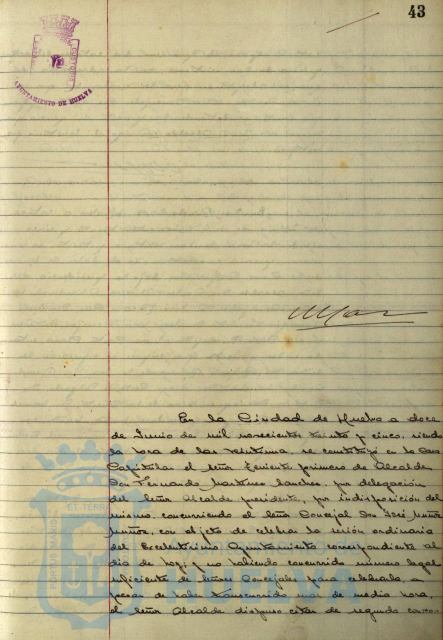 43
AYUNTAMIENTO DE HUELVA
En la Ciudad de Huelva a doce
de Junio de mil novecientos treinta y cinco, siendo
la hora de las veintiuna, se constituyó en la Casa
Capitular el señor Teniente primero de Alcalde
Don Fernando Martinez Sanchez, por delegación
del Señor Alcalde presidente, por indisposición del
mismo, concurriendo el señor Concejal Don José Muñoz
Muñoz, con objeto de celebrar la sesión ordinaria
del Excelentísimo Ayuntamiento correspondiente al
día de hoy; y no habiendo concurrido número legal
suficiente de señores Concejales para celebrarla a
pesar de haber transcurrido mas de media hora,
el señor Alcalde dispuso citar de segunda convo